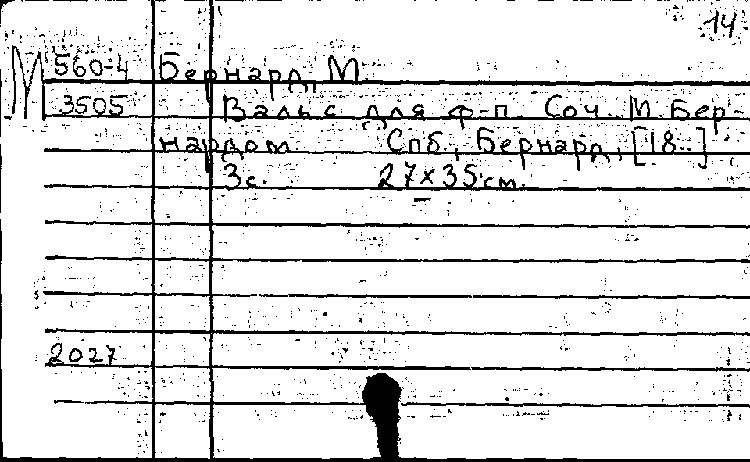 14
М 560-4 Бернард, М.
3505 Вальс для ф-п. Соч. М. Бер-
нардом. Спб., Бернард, [18..]
3с. 27×35 см.
2027